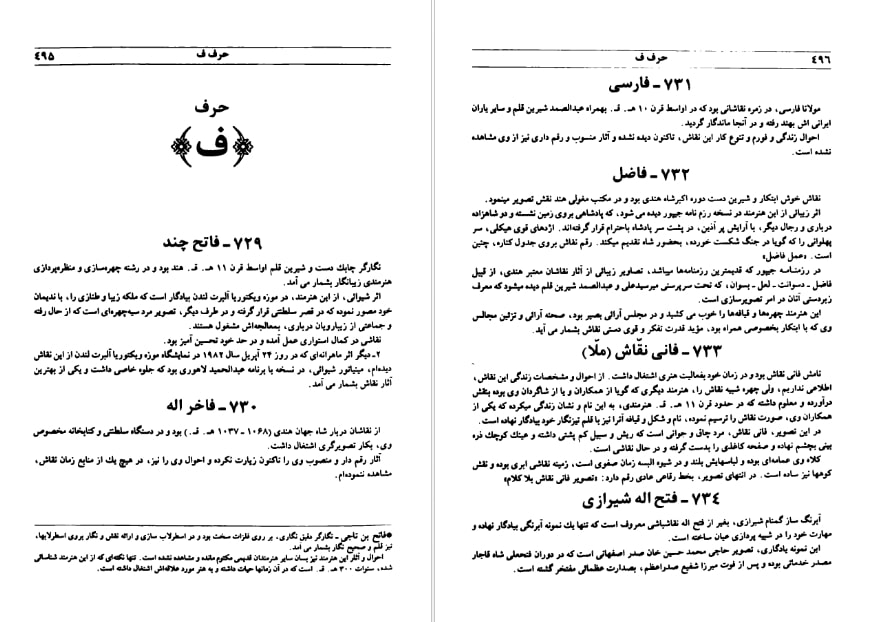 حرف ف
٤٩٥
حرف
ف
٧٢٩ ـ فاتح چند
نگارگر چابك دست و شیرین قلم اواسط قرن ١١ هـ. ق. هند بود و در رشته چهره‌سازی و منظره‌پردازی
هنرمندی زیبانگار بشمار می آمد.
اثر شیوائی، از این هنرمند، در موزه ویکتوریا آلبرت لندن بیادگار است که ملکه زیبا و طنازی را، با ندیمان
خود مصور نموده که در قصر سلطنتی قرار گرفته و در طرف دیگر، تصویر مرد سیه‌چهره‌ای است که از حال رفته
و جماعتی از زیبارویان درباری، بمعالجه‌اش مشغول هستند.
نقاشی در کمال استواری عمل آمده و در حد خود تحسین آمیز بود.
٢ـ دیگر اثر ماهرانه‌ای که در روز ٢٤ آپریل سال ١٩٨٢ در نمایشگاه موزه ویکتوریا آلبرت لندن از این نقاش
دیده‌ام، مینیاتور شیوائی، در نسخه با برنامه عبدالحمید لاهوری بود که جلوه خاصی داشت و یکی از بهترین
آثار نقاش بشمار می آمد.
٧٣٠ ـ فاخر اله
از نقاشان دربار شاه جهان هندی (١٠٦٨ ـ ١٠٣٧ هـ. ق.) بود و در دستگاه سلطنتی و کتابخانه مخصوص
وی، بکار تصویرگری اشتغال داشت.
آثار رقم دار و منصوب وی را تاکنون زیارت نکرده و احوال وی را نیز، در هیچ یك از منابع زمان نقاش،
مشاهده ننموده‌ام.
*فاتح بن ناجی ـ نگارگر دقیق نگاری، بر روی فلزات سخت بود و در اسطرلاب سازی و ارائه نقش و نگار بروی اسطرلابها،
نیز قلم و صحیح نگار بشمار می آمد.
احوال و آثار این هنرمند نیز بسان سایر هنرمندان قدیمی مکتوم مانده و مشاهده نشده است. تنها نکته‌ای که از این هنرمند شناسائی
شده، سنوات ٣٠٠ هـ. ق. است که در آن زمانها حیات داشته و به هنر مورد علاقه‌اش اشتغال داشته است.
حرف ف
٤٩٦
٧٣١ ـ فارسی
مولانا فارسی، در زمره نقاشانی بود که در اواسط قرن ١٠ هـ. ق. بهمراه عبدالصمد شیرین قلم و سایر یاران
ایرانی اش بهند رفته و در آنجا ماندگار گردید.
احوال زندگی و فورم و تنوع کار این نقاش، تاکنون دیده نشده و آثار منسوب و رقم داری نیز از وی مشاهده
نشده است.
٧٣٢ ـ فاضل
نقاش خوش ابتکار و شیرین دست دوره اکبرشاه هندی بود و در مکتب مغولی هند نقش تصویر مینمود.
اثر زیبائی از این هنرمند در نسخه رزم نامه جیپور دیده می شود، که پادشاهی بروی زمین نشسته و دو شاهزاده
درباری و رجال دیگر، با آرایش پر آذین، در پشت سر پادشاه باحترام قرار گرفته‌اند. اژدهای قوی هیکلی، سر
پهلوانی را که گویا در جنگ شکست خورده، بحضور شاه تقدیم میکند. رقم نقاش بروی جدول کناره، چنین
است. «عمل فاضل»
در رزمنامه جیپور که قدیمترین رزمنامه‌ها میباشد، تصاویر زیبائی از آثار نقاشان معتبر هندی، از قبیل
فاضل ـ دسوانت ـ لعل ـ بسوان، که تحت سرپرستی میرسیدعلی و عبدالصمد شیرین قلم دیده میشود که معرف
زبردستی آنان در امر تصویرسازی است.
این هنرمند چهره‌ها و قیافه‌ها را خوب می کشید و در مجلس آرائی بصیر بود، صحنه آرائی و تزئین مجالس
وی که با ابتکار بخصوصی همراه بود، مؤید قدرت تفکر و قوی دستی نقاش بشمار می آید.
٧٣٣ ـ فانی نقّاش (ملّا)
نامش فانی نقاش بود و در زمان خود بفعالیت هنری اشتغال داشت. از احوال و مشخصات زندگی این نقاش،
اطلاعی نداریم، ولی چهره شبیه نقاش را، هنرمند دیگری که گویا از همکاران و یا از شاگردان وی بوده بنقش
درآورده و معلوم داشته که در حدود قرن ١١ هـ. ق. هنرمندی، به این نام و نشان زندگی میکرده که یکی از
همکاران وی، صورت نقاش را ترسیم نموده، نام و شکل و قیافه آنرا نیز با قلم نیزنگار خود بیادگار نهاده است.
در این تصویر، فانی نقاش، مرد چاق و جوانی است که ریش و سبیل کم پشتی داشته و عینك کوچك ذره
بینی بچشم نهاده و صفحه کاغذی را بدست گرفته و در حال نقاشی است.
کلاه وی عمامه‌ای بوده و لباسهایش بلند و در شیوه البسه زمان صفوی است، زمینه نقاشی ابری بوده و نقش
کوهها نیز ساده است. در انتهای تصویر، بخط رقاعی عادی رقم دارد: «تصویر فانی نقاش بلا کلام»
٧٣٤ ـ فتح اله شیرازی
آبرنگ ساز گمنام شیرازی، بغیر از فتح اله نقاشباشی معروف است که تنها یك نمونه آبرنگی بیادگار نهاده و
مهارت خود را در شبیه پردازی عیان ساخته است.
این نمونه یادگاری، تصویر حاجی محمد حسین خان صدر اصفهانی است که در دوران فتحعلی شاه قاجار
مصدر خدماتی بوده و پس از فوت میرزا شفیع صدراعظم، بصدارت عظمائی مفتخر گشته است.